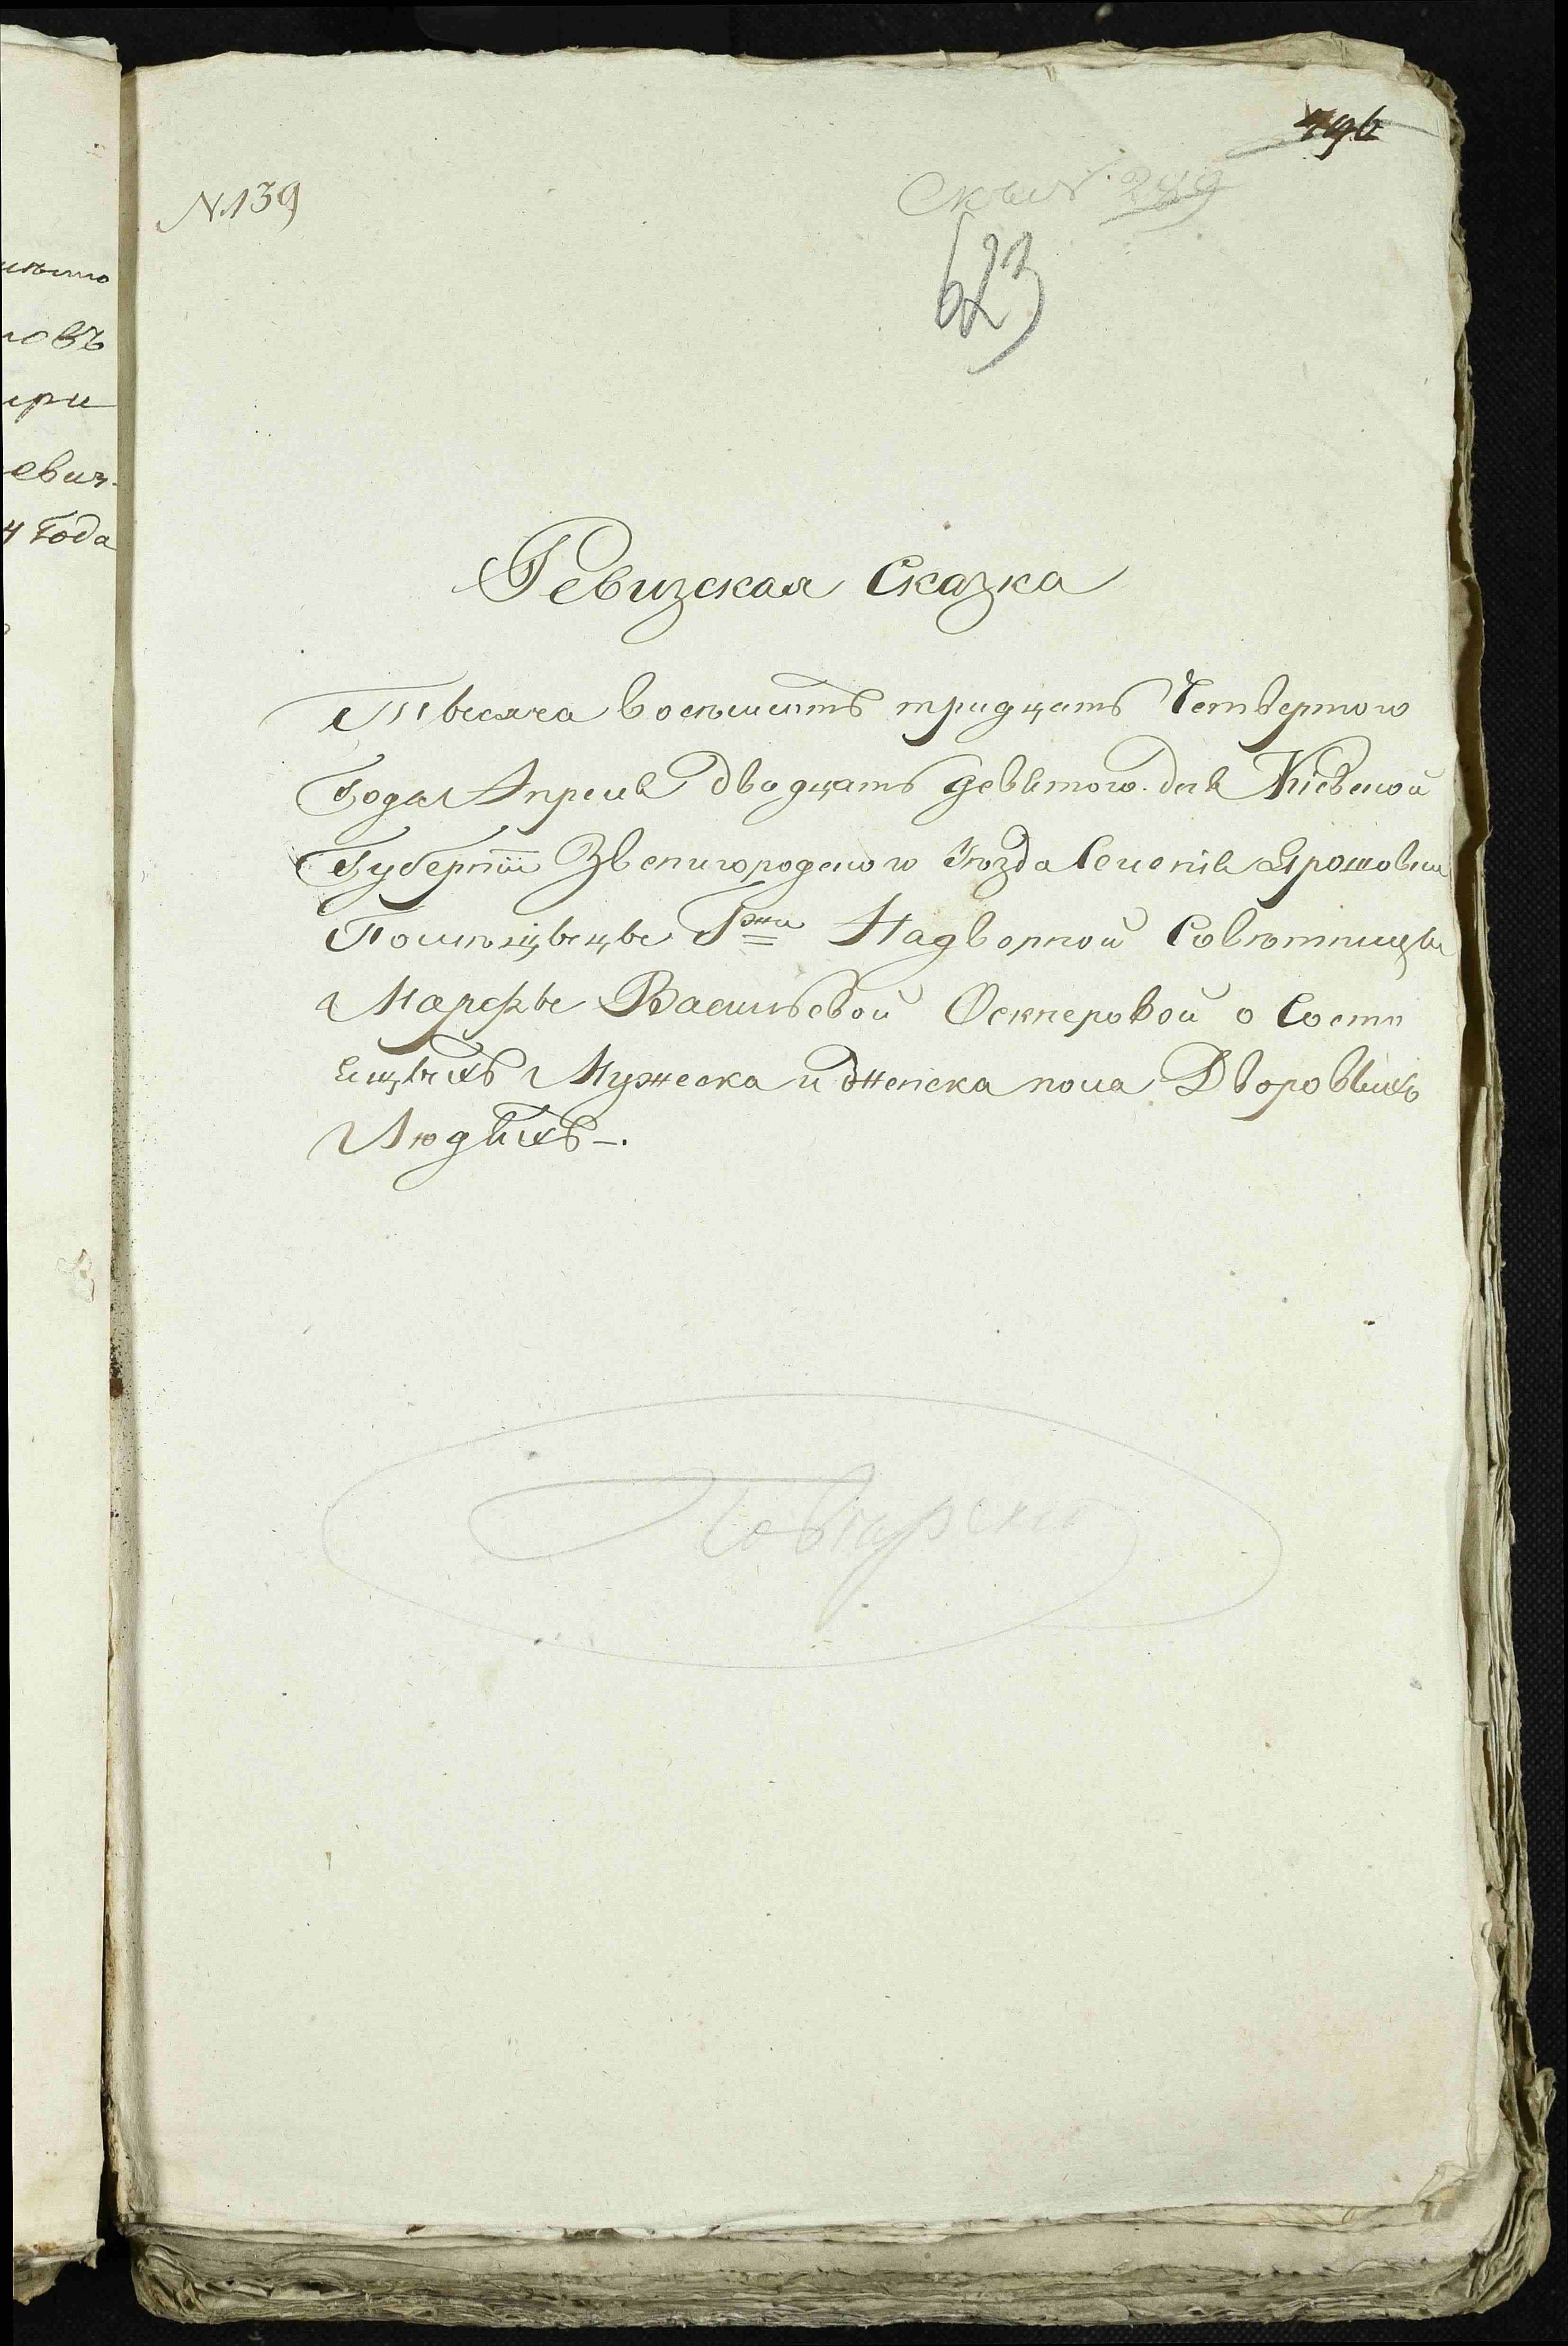 496
N 139
623
Ревизская Сказка
Тысяча восемьсотъ тридцать Четвертого
Года Апреля двадцать девятого дня Кіевской
Губерніи Звенигородского Уезда Селенія Ярошовки
Помѣщыцы Гжи Надворной Совѣтницы
Марфы Васильевой Оскперовой о Состо
ящыхъ Мужеска и женска пола Дворовыхъ
Людяхъ -.
овъ
при
евич
4 Года